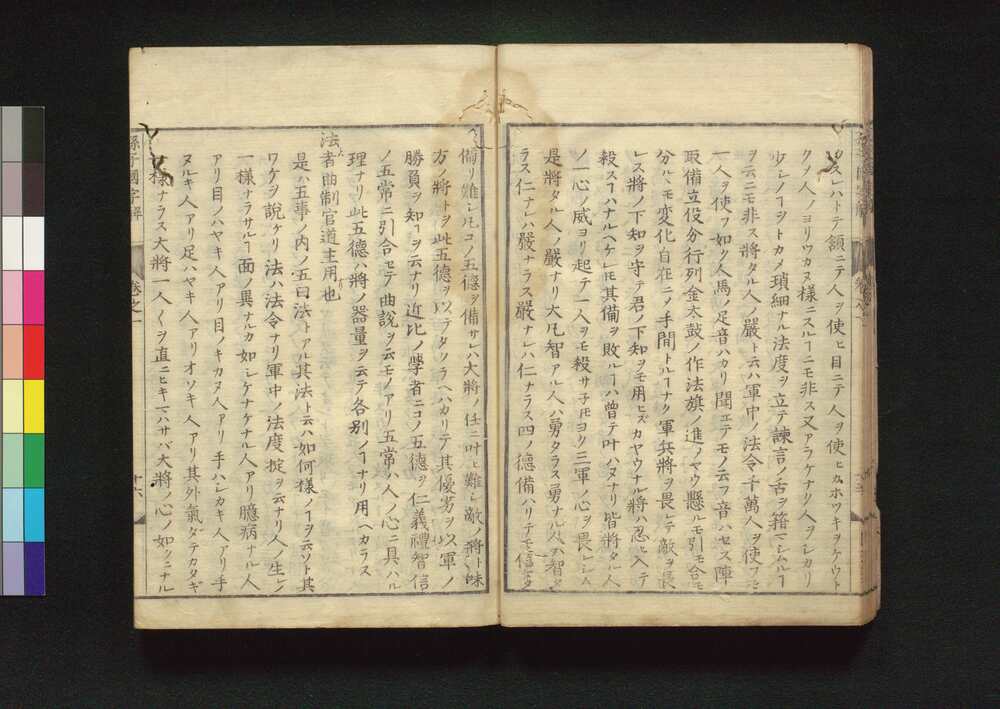 タスレハトテ頷ニテ人ヲ使ヒ目ニテ人ヲ使ヒカホツキヲケウト
ク人ノヨリツカヌ様ニスルヿニモ非ス又アラケナク人ヲシカリ
少シノヿヲトカメ瑣細ナル法度ヲ立テ諫言ノ舌ヲ箝マシムルヿ
ヲ云ニモ非ス將タル人ノ嚴ト云ハ軍中ノ法令千萬人ヲ使フニ
一人ヲ使フ如ク人馬ノ足音ハカリ聞エテモノ云フ音ハセス陣
取備立役分行列金太鼓ノ作法旗ノ進メヤウ懸ルモ引モ合モ
分ルヽモ変化自在ニメ手間トルヿナク軍兵將ヲ畏レテ敵ヲ畏
レス將ノ下知ヲ守テ君ノ下知ヲモ用ヒスカヤウナル將ハ忍ヒ入テ
殺スヿハナルヘケレモ其備ヲ敗ルヿハ曽テ叶ハヌナリ皆將タル人
ノ一心ノ威ヨリ起テ一人ヲモ殺サ子モヨク三軍ノ心ヲ畏レシム
是將タル人ノ嚴ナリ大凡智アル人ハ勇タラス勇ナル人ハ智タ
ラス仁ナレハ嚴ナラス嚴ナレハ仁ナラス四ノ徳備ハリテモ信
備リ難シ凡コノ五徳ヲ備サレハ大將ノ任ニ叶ヒ難シ敵ノ將ト味
方ノ將トヲ此五徳ヲ以テタクラヘハカリテ其優劣ヲ以軍ノ
勝負ヲ知ヿヲ云ナリ近比ノ學者ニコノ五徳ヲ仁義禮智信
ノ五常ニ引合セテ曲說ヲ云モノアリ五常ハ人ノ心ニ具ハル
理ナリ此五徳ハ將ノ器量ヲ云テ各別ノヿナリ用ヘカラス
法者曲制官道主用也
是ハ五事ノ内ノ五曰法トアル其法ト云ハ如何樣ノヿヲ云ソト其
ワケヲ說ケリ法ハ法令ナリ軍中ノ法度掟ヲ云ナリ人ノ生レ
一樣ナラサルヿ面ノ異ナルカ如シケナケナル人アリ臆病ナル人
アリ目ノハヤキ人アリ目ノキカヌ人アリ手ハシカキ人アリ手
ヌルキ人アリ足ハヤキ人アリオソキ人アリ其外氣タテカタギ
樣ナラス大將一人人ヲ直ニヒキマハサバ大將ノ心ノ如クニナル
孫子國字解
卷之一
十六